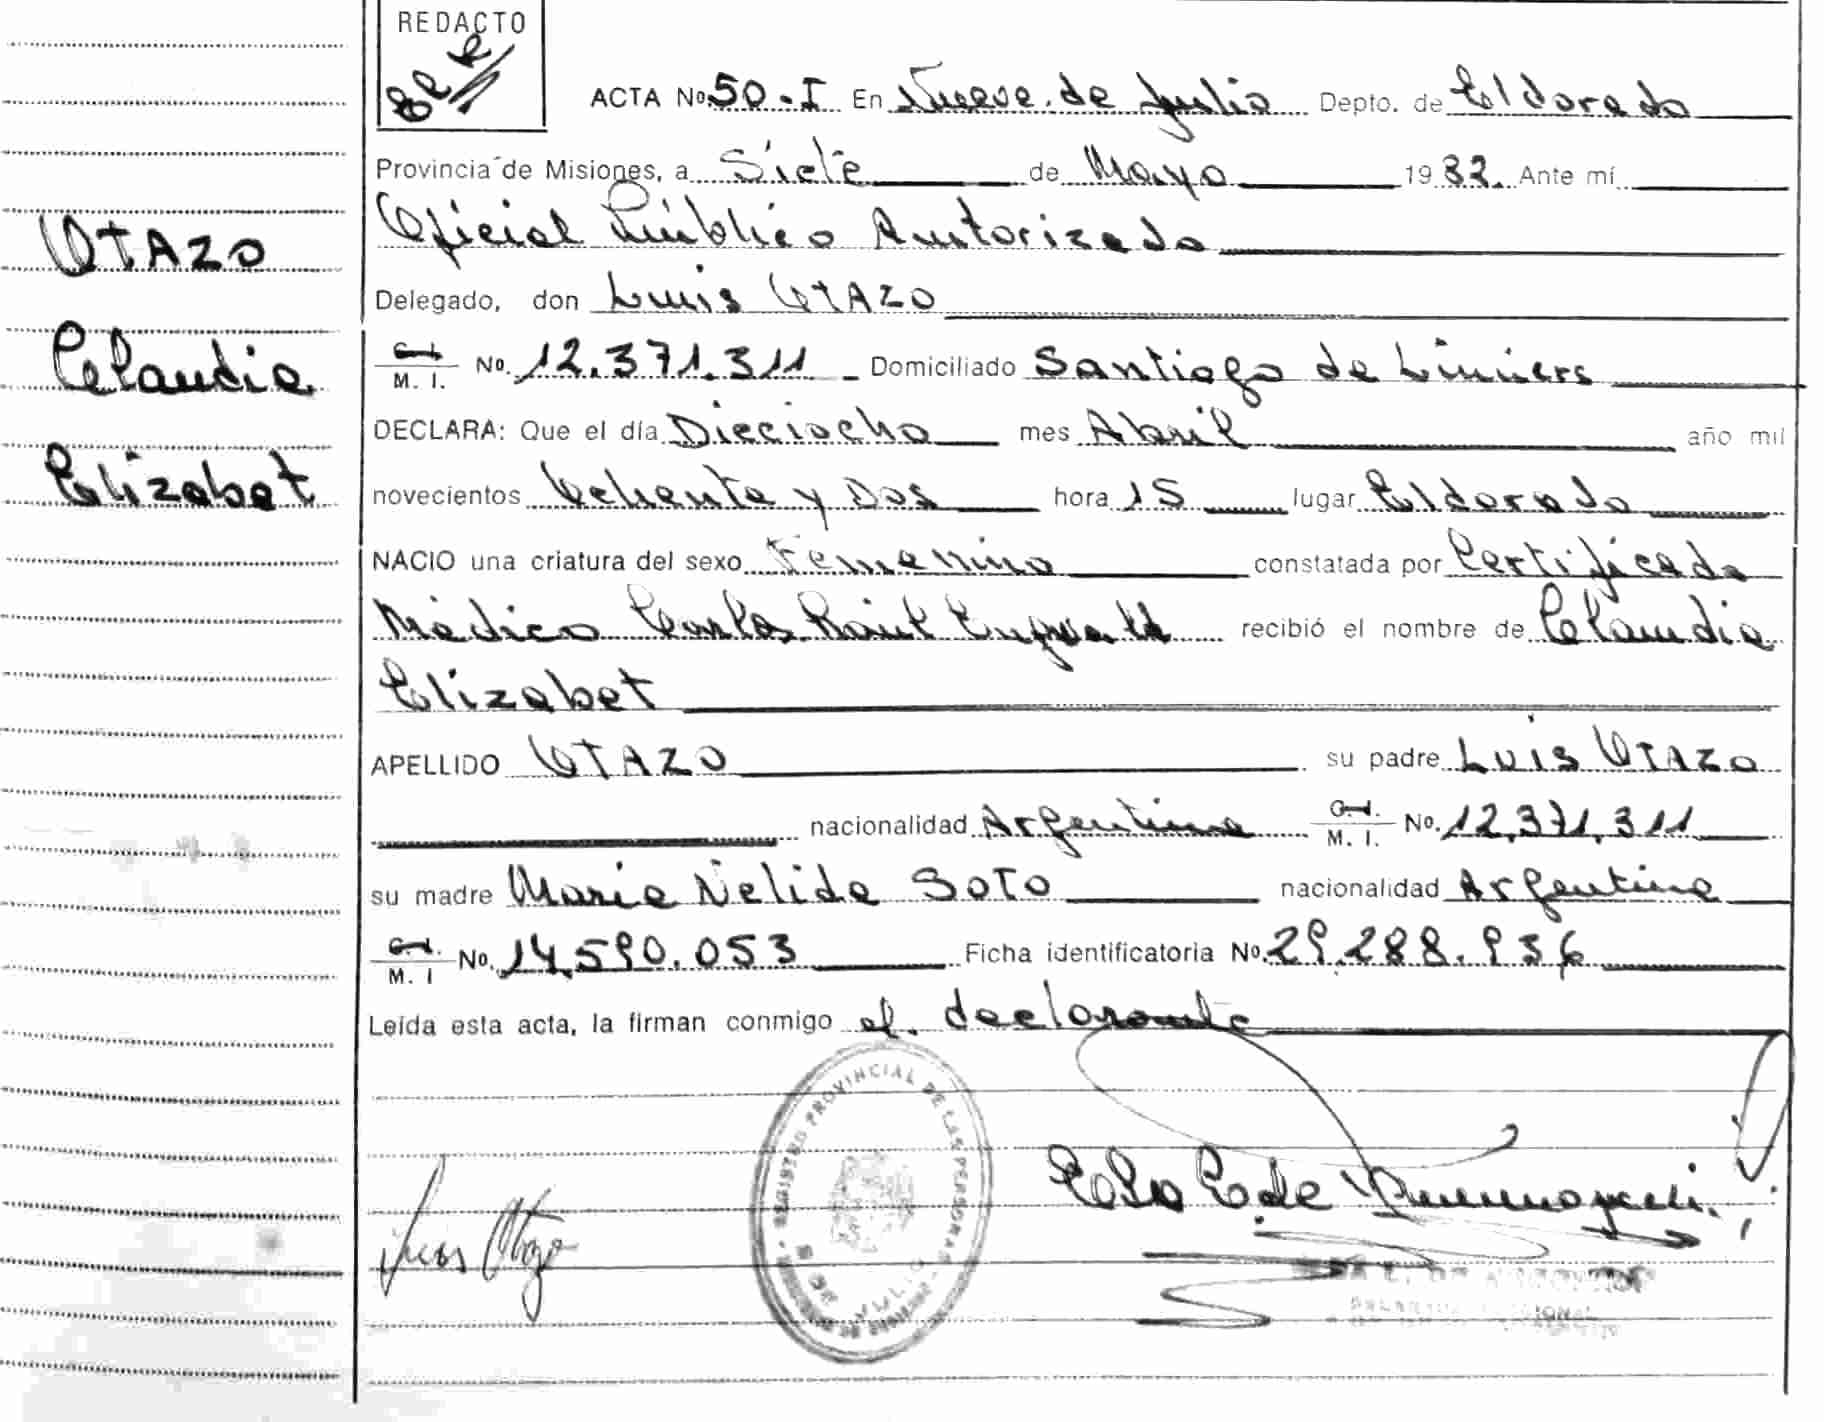 REDACTO
ACTA Nº 50-I En Nueve de Julio Depto. de Eldorado
Provincia de Misiones, a Siete de Mayo 1982. Ante mí
Oficial Público Autorizado
OTAZO
Delegado, don Luis OTAZO
Claudia
C.I. M. I. No. 12.371.311 Domiciliado Santiago de Liniers
DECLARA: Que el día Dieciocho mes Abril año mil
Elizabet
novecientos Ochenta y Dos hora 15 lugar Eldorado
NACIO una criatura del sexo Femenino constatada por Certificado
Médico Carlos Raúl recibió el nombre de Claudia
Elizabet
APELLIDO OTAZO su padre Luis OTAZO
nacionalidad Argentina C.I. M. I. No. 12.371.311
su madre Maria Nelida SOTO nacionalidad Argentina
C.I. M. I No. 14.590.053 Ficha identificatoria No. 29.288.936
Leída esta acta, la firman conmigo el declarante
REGISTRO PROVINCIAL DE LAS PERSONAS
9 DE JULIO
Luis Otazo